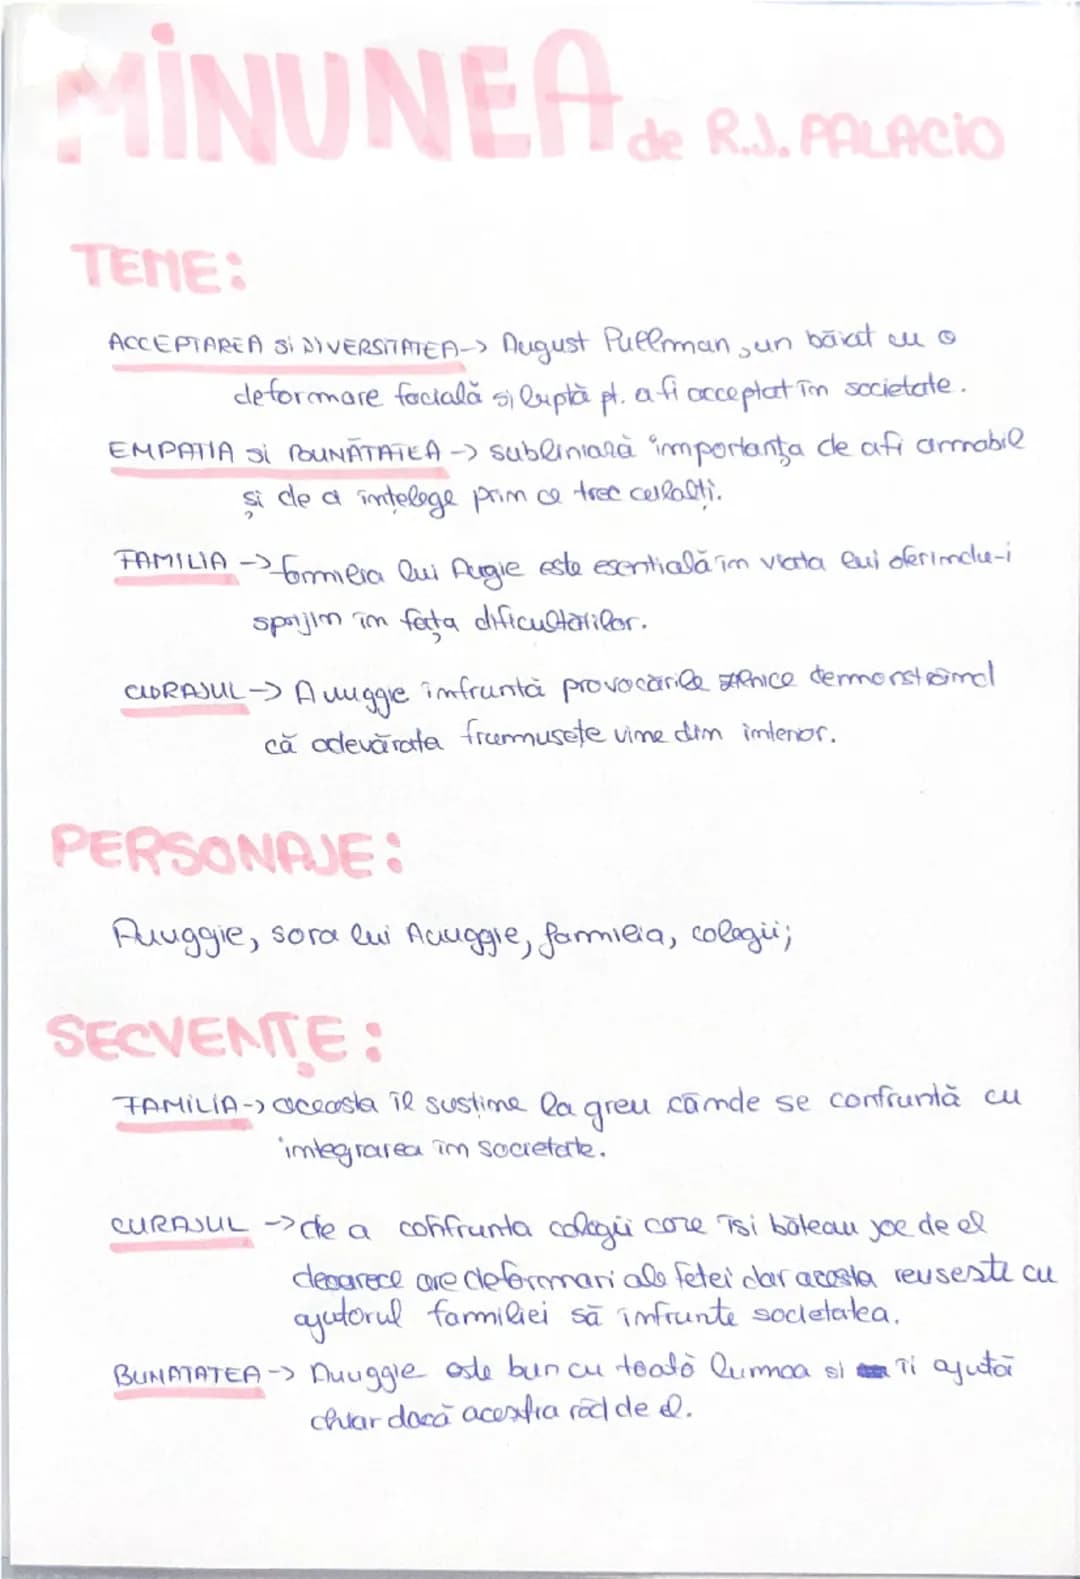 MINUNEA de R.J. PALACIO
TEME:
ACCEPTAREA și DIVERSITATEA-> August Pullman, un băiat cu o
deformare facială și luptă pt. a fi acceptat în societate.
EMPATIA și BUNĂTATEA -> subliniară importanța de afi amabil
și de a înțelege prin ce trec ceilalți.
FAMILIA -> familia lui Augie este esentială în viata lui oferindu-i
sprijin în fața dificultărilor.
CURAJUL -> Auuggie înfruntă provocările zilnice demonstrând
că adevărata frumusețe vine din interior.
PERSONAJE:
Auuggie, sora lui Auuggie, familia, colegii;
SECVENȚE:
FAMILIA -> aceasta îl susține la greu cânde se confruntă cu
integrarea în societate.
CURAJUL -> de a confrunta colegii care își băteau joc de el
deoarece are deformari ale fetei dar acesta reuseste cu
ajutorul familiei să înfrunte societatea.
BUNATATEA -> Auuggie este bun cu toată lumea si îi ajută
chiar dacă aceștia râd de el.